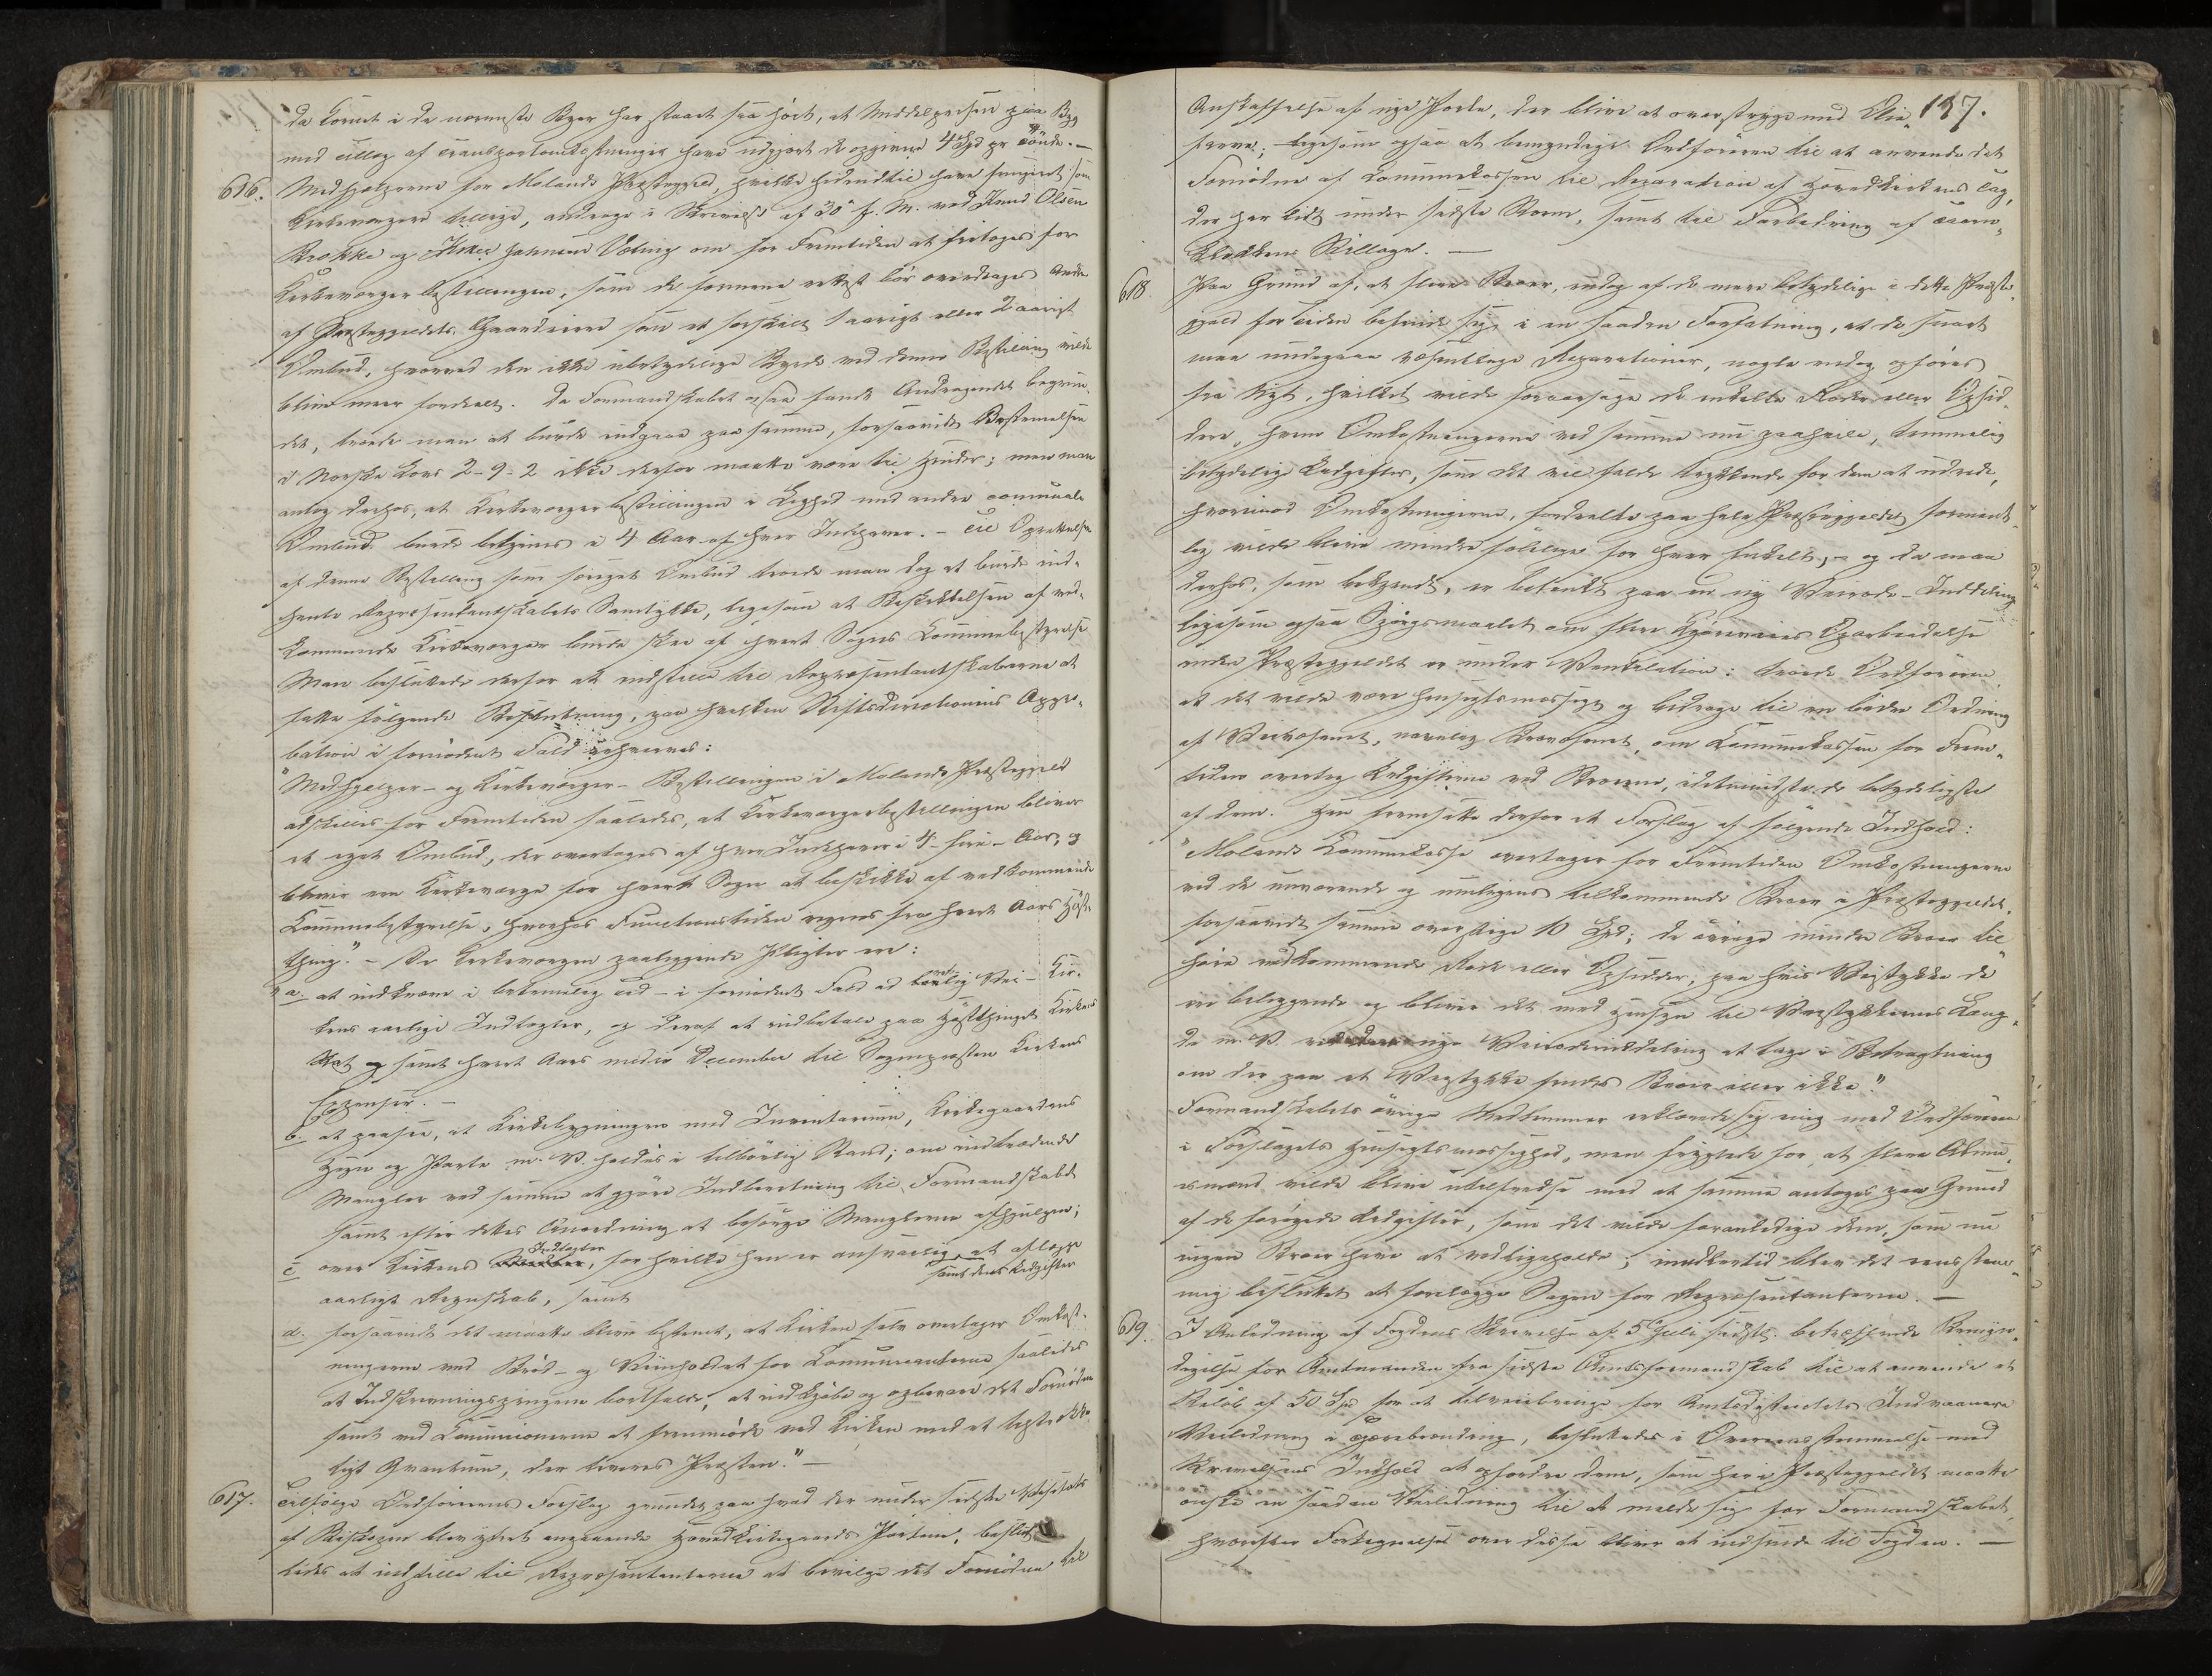 da Kornet i de nærmeste Byer har staaet saa høit, at Middelprisen paa Byg
med Tillæg af Transportomkostninger have udgjort de opgivne 4 Spd pr Tønde. —
616. Medhjælperne for Molands Præstegjeld, hvilke hidindtil have fungeret som
Kirkeværger tillige, androge i Skrivelse af 30te f. M. ved Knud Olsen
Brække og Johannesen om for Fremtiden at fritages for
Kirkeværger bestillingen, som de formene rettest bør overdrages Andre
af Præstegjeldets Gaardmænd som et særskilt 1 aarigt eller 2 aarigt
Ombud, hvorved den ikke ubetydelige Byrde ved denne Bestilling vilde
blive meer fordeelt. Da Formandskabet ogsaa fandt Andragendet begrun-
det, troede man at burde indgaae paa samme, forsaavidt Bestemmelsen
i Norske Lovs 2-9-2 ikke derfor maatte være til Hinder; men man
antog derhos, at Kirkeværger bestillingen i Lighed med andre communale
Ombud burde betjenes i 4 Aar af hver Indehaver. — Til Oprettelse
af denne Bestilling som særeget Ombud troede man dog at burde ind-
hente Repræsentantskabets Samtykke, ligesom at Beskikkelsen af ved-
kommende Kirkeværger burde skee af hvert Sogns Kommunebestyrelse
Man besluttede derfor at indstille til Repræsentantskaberne at
fatte følgende Beslutning, paa hvilken Stiftsdirectionens Appro-
bation i fornødent Fald erhverves:
"Medhjælper- og Kirkeværger-Bestillingen i Molands Præstegjeld
adskilles for Fremtiden saaledes, at Kirkeværgerbestillingen bliver
et eget Ombud, der overtages af hver Indehaver i 4 - fire - Aar, og
bliver een Kirkeværge for hvert Sogn at beskikke af vedkommende
Kommunebestyrelse, hvorhos Functionstiden regnes fra hvert Aars Høst-
thing". — De Kirkeværgen paaliggende Pligter ere:
a. at indkræve i betimelig Tid - i fornødent Fald ad lovlig Vei - Kir-
kens aarlige Indtægter, og deraf at indbetale paa Høstthinget Kirkens
Skat og samt hvert Aars medio December til Sognepresten Kirkens
Expenser. —
b. at paasee, at Kirkebygningen med Inventarium, Kirkegaardens
Hegn og Porte m. V. holdes i tilbørlig Stand; om indtrædende
Mangler ved samme at gjøre Indberetning til Formandskabet
samt efter dettes Anordning at besørge Manglerne afhjulpne;
c. over Kirkens Indtægter, for hvilke han er ansvarlig, samt dens Udgifter at aflægge
aarligt Regnskab, samt
d. forsaavidt det maatte blive bestemt, at Kirken selv overtager Omkost-
ningerne ved Brød- og Viinholdet for Communicanterne saaledes
at Indskrivningspengene bortfalde, at indkjøbe og opbevare det Fornødne
samt ved Communionerne at fremmøde ved Kirken med et tilstrække-
ligt Qvantum, der leveres Præsten." —
617. Tilfølge Ordførerens Forslag grundet paa hvad der under sidste Visitats
af Biskopen blev ytret angaaende Hovedkirkegaards Portene, beslut-
tedes at indstille til Repræsentanterne at bevilge det Fornødne til
Anskaffelse af nye Porte, der blive at overstryge med Olie- 137.
farve; ligesom ogsaa at bemyndige Ordføreren til at anvende det
Fornødne af Communekassen til Reparation af Hovedkirkens Tag,
der har lidt under sidste Storm, samt til Forbedring af Taarn-
klokkens Stillage. —
618 Paa Grund af, at flere Broer, endog af de mere betydelige i dette Præste-
gjeld for Tiden befinde sig i en saadan Forfatning, at de snart
maa undergaae væsentlige Reparationer, nogle endog opføres
fra Nyt, hvilket vilde foraarsage de enkelte Roder eller Opsid-
dere, hvem Omkostningerne ved samme nu paahvile, temmelig
betydelige Udgifter, som det vil falde trykkende for dem at udrede,
hvorimod Omkostningerne, fordeelte paa hele Præstegjeldet forment-
lig vilde blive mindre følelige for hver Enkelt, - og da man
derhos, som bekjendt, er betænkt paa en ny Veirode-Inddeling
ligesom ogsaa Spørgsmaalet om flere Kjøreveies Oparbeidelse
inden Præstegjeldet er under Ventilation: troede Ordføreren
at det vilde være hensigtsmæssigt og bidrage til en bedre Ordning
af Veivæsenet, navnlig Brovæsenet, om Communekassen for Frem-
tiden overtog Udgifterne ved Broerne, idetmindste de betydeligste
af dem. Han fremsatte derfor et Forslag af følgende Indhold:
"Molands Communekasse overtager for Fremtiden Omkostningerne
ved de nuværende og muligens tilkommende Broer i Præstegjeldet,
forsaavidt samme overstige 10 Spd; de øvrige mindre Broer til-
høre vedkommende Rode eller Opsidder, paa hvis Veistykke de
ere beliggende og bliver det med Hensyn til Veistykkernes Læng-
de m. V. ved nye Veirodeinddeling at tage i Betragtning
om der paa et Veistykke findes Broer eller ikke."
Formandskabets øvrige Medlemmer erklærede sig enig med Ordføreren
i Forslagets Hensigtsmæssighed, men frygtede for, at flere Almu-
esmænd vilde blive utilfredse med at samme antoges paa Grund
af de forøgede Udgifter, som det vilde foranledige dem, som nu
ingen Broer have at vedligeholde; imidlertid blev det eenstem-
mig besluttet at forelægge Sagen for Repræsentanterne. —
619. I Anledning af Fogdens Skrivelse af 5te Juli sidstl. betræffende Bemyn-
digelse for Amtmanden fra sidste Amtsformandskab til at anvende et
Beløb af 50 Spd for at tilveiebringe for Amtsdistrictets Indvaanere
Veiledning i Tjærebrænding, besluttedes i Overeensstemmelse med
Skrivelsens Indhold at opfordre dem, som her i Præstegjeldet maatte
ønske en saadan Veiledning til at melde sig for Formandskabet,
hvorefter Fortegnelse over disse bliver at indsende til Fogden. —